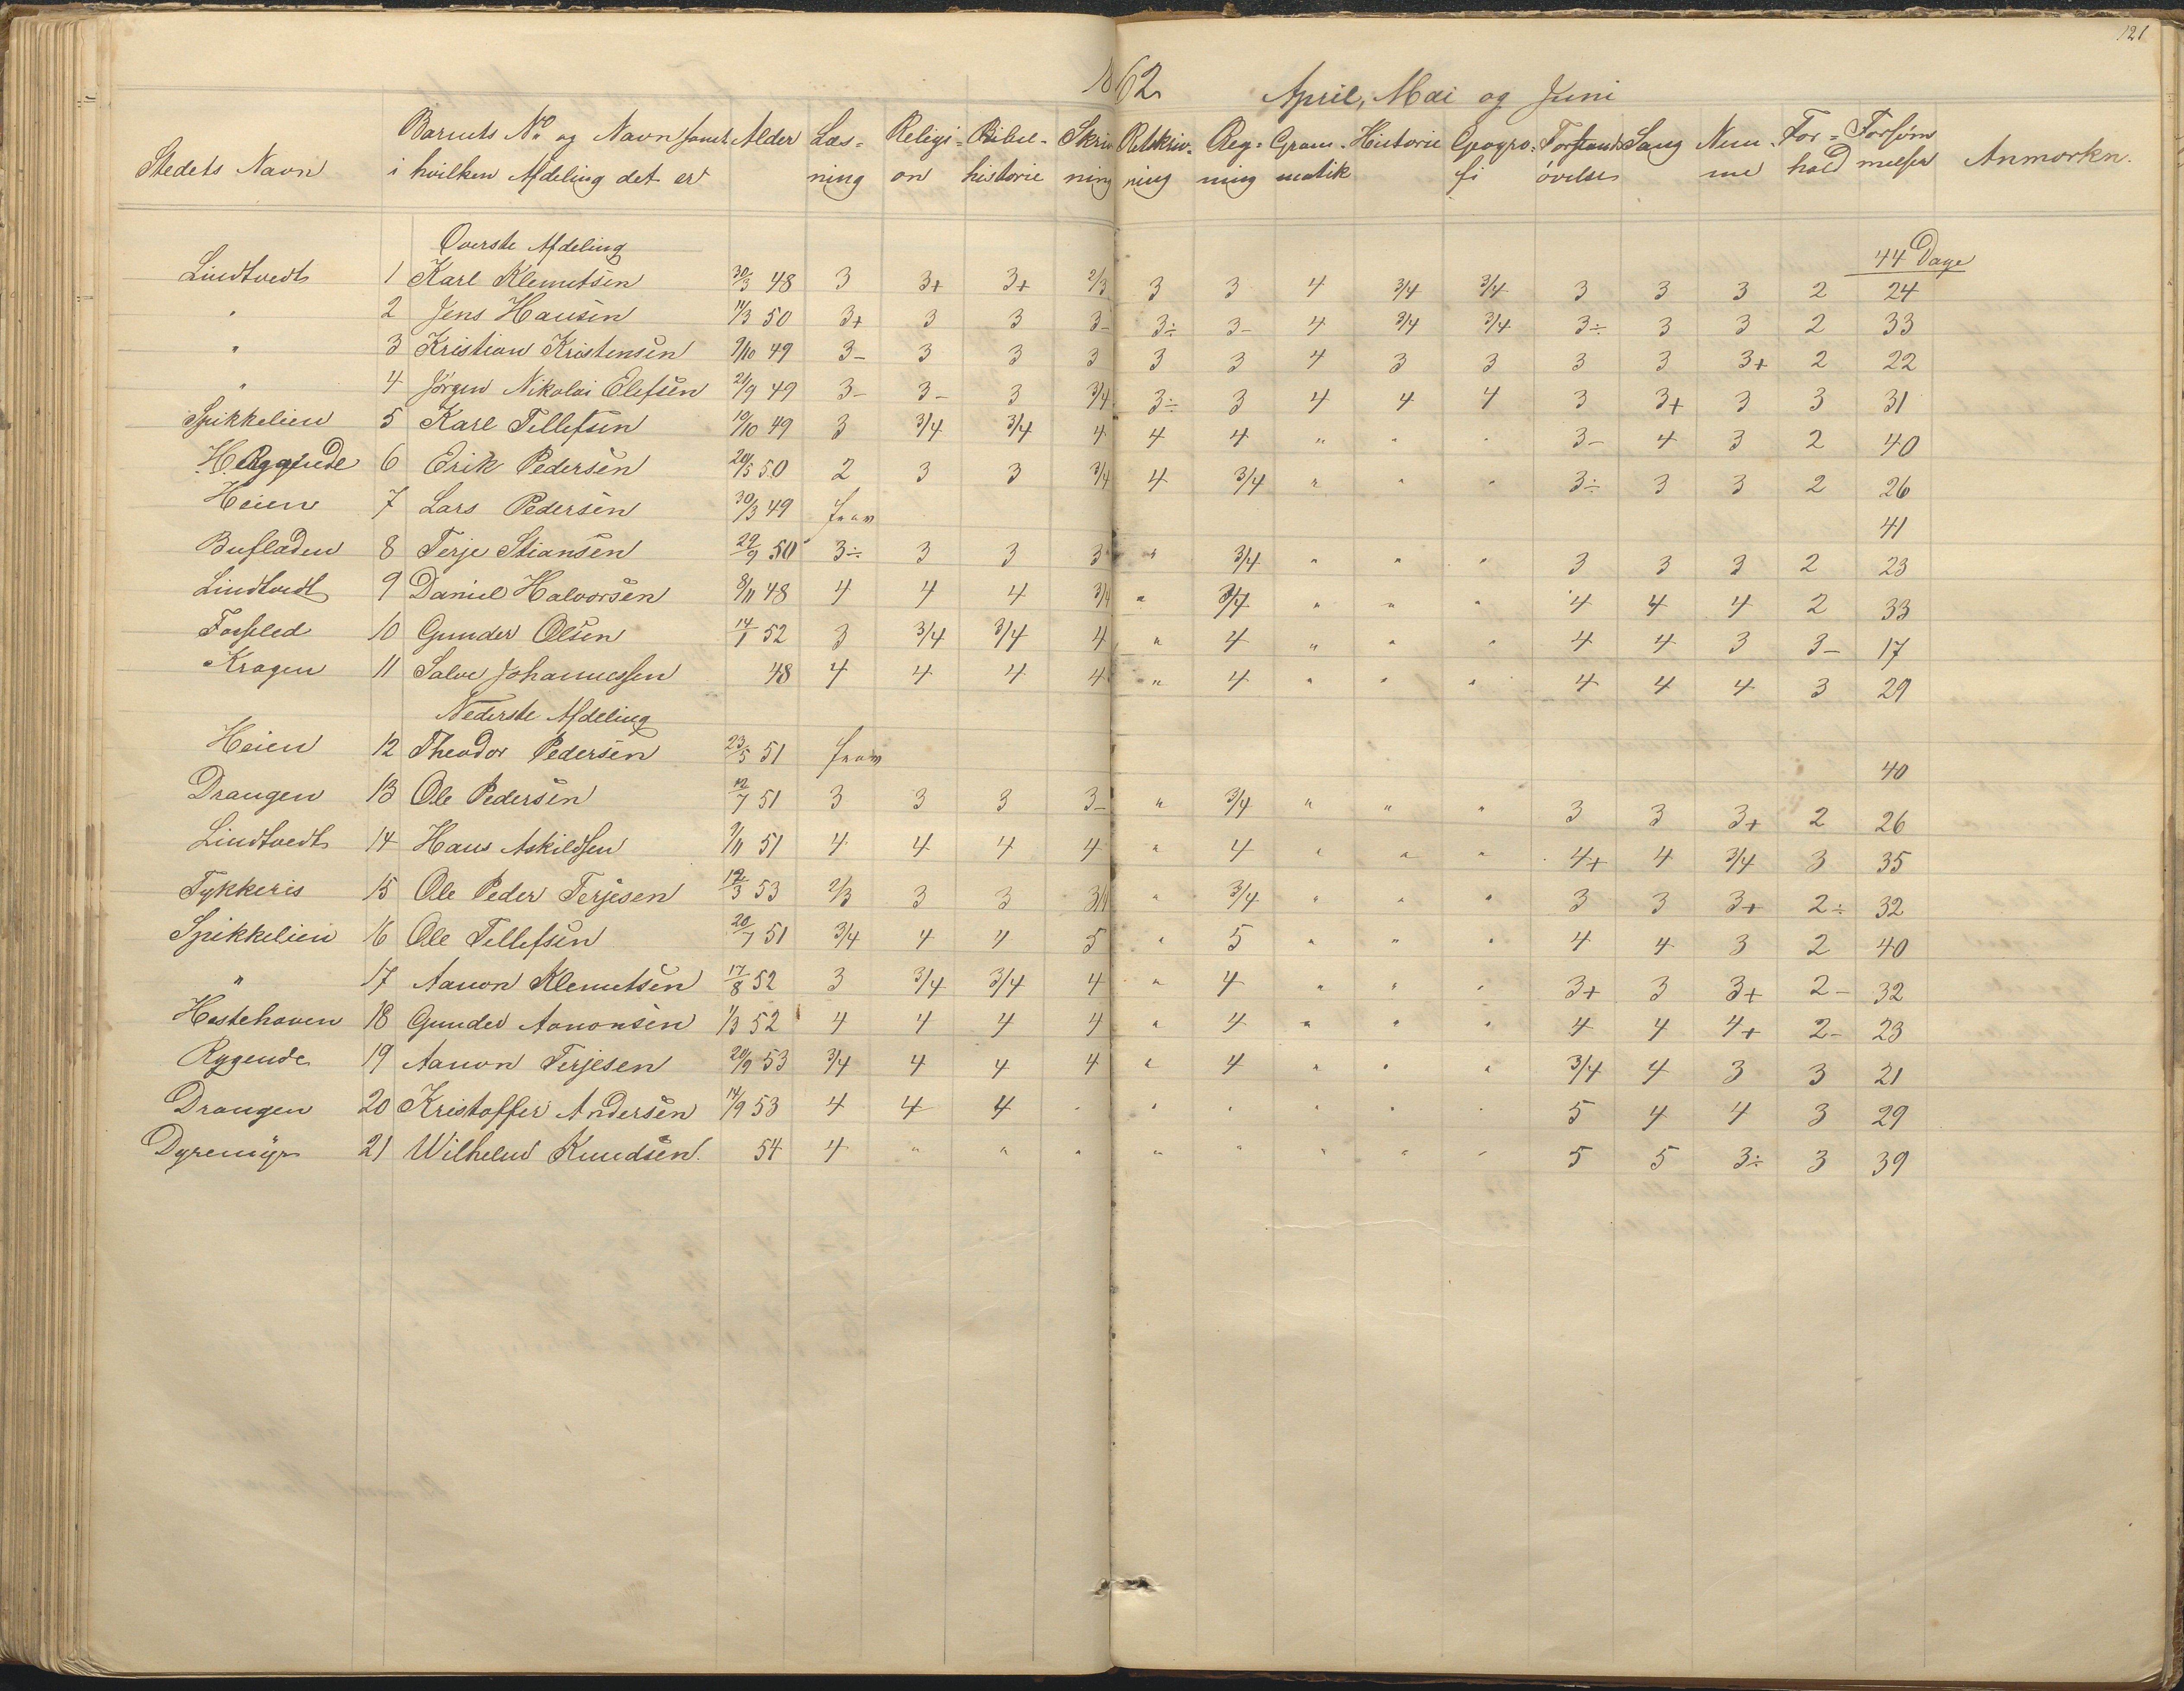 121
1862 April, Mai og Juni
Stedets Navn Barnets No og Navn samt i hvilken Afdeling det er Alder Læsning Religion Bibelhistorie Skrivning Retskrivning Regning Grammatik Historie Geografi Forstandsøvelse Sang Nemme Forhold Forsømmelser Anmærkn.
Øverste Afdeling 44 Dage
Lindtvedt 1 Karl Klemetsen 30/3 48 3 3+ 3+ 2/3 3 3 4 3/4 3/4 3 3 3 2 24
" 2 Jens Hansen 11/3 50 3+ 3 3 3- 3÷ 3- 4 3/4 3/4 3÷ 3 3 2 33
" 3 Kristian Kristensen 9/10 49 3- 3 3 3 3 3 4 3 3 3 3 3+ 2 22
" 4 Jørgen Nikolai Elefsen 21/9 49 3- 3- 3 3/4 3÷ 3 4 4 4 3 3+ 3 3 31
Spikkelien 5 Karl Tellefsen 10/10 49 3 3/4 3/4 4 4 4 " " " 3- 4 3 2 40
6 Erik Pedersen 20/5 50 2 3 3 3/4 4 3/4 " " " 3÷ 3 3 2 26
Heien 7 Lars Pedersen 30/3 49 frav 41
Bufladen 8 Terje Stiansen 22/9 50 3÷ 3 3 3 " 3/4 " " " 3 3 3 2 23
Lindtvedt 9 Daniel Halvorsen 8/11 48 4 4 4 3/4 " 3/4 " " " 4 4 4 2 33
10 Gunder Olsen 14/1 52 3 3/4 3/4 4 " 4 " " " 4 4 3 3- 17
Kragen 11 Salve Johannessen 48 4 4 4 4 " 4 " " " 4 4 4 3 29
Nederste Afdeling
Heien 12 Theodor Pedersen 23/5 51 frav 40
Drangen 13 Ole Pedersen 12/7 51 3 3 3 3- " 3/4 " " " 3 3 3+ 2 26
Lindtvedt 14 Hans Askildsen 9/11 51 4 4 4 4 " 4 " " " 4+ 4 3/4 3 35
Tykkeris 15 Ole Peder Terjesen 12/3 53 2/3 3 3 3/4 " 3/4 " " " 3 3 3+ 2÷ 32
Spikkelien 16 Ole Tellefsen 20/7 51 3/4 4 4 5 " 5 " " " 4 4 3 2 40
" 17 Aanon Klemetsen 17/8 52 3 3/4 3/4 4 " 4 " " " 3+ 3 3+ 2- 32
Hestehaven 18 Gunder Aanonsen 1/3 52 4 4 4 4 " 4 " " " 4 4 4+ 2- 23
Rygende 19 Aanon Terjesen 20/9 53 3/4 4 4 4 " 4 " " " 3/4 4 3 3 21
Drangen 20 Kristoffer Andersen 14/9 53 4 4 4 " " " " " " 5 4 4 3 29
Dyremyr 21 Wilhelm Knudsen. 54 4 " " " " " " " " 5 5 3÷ 3 39